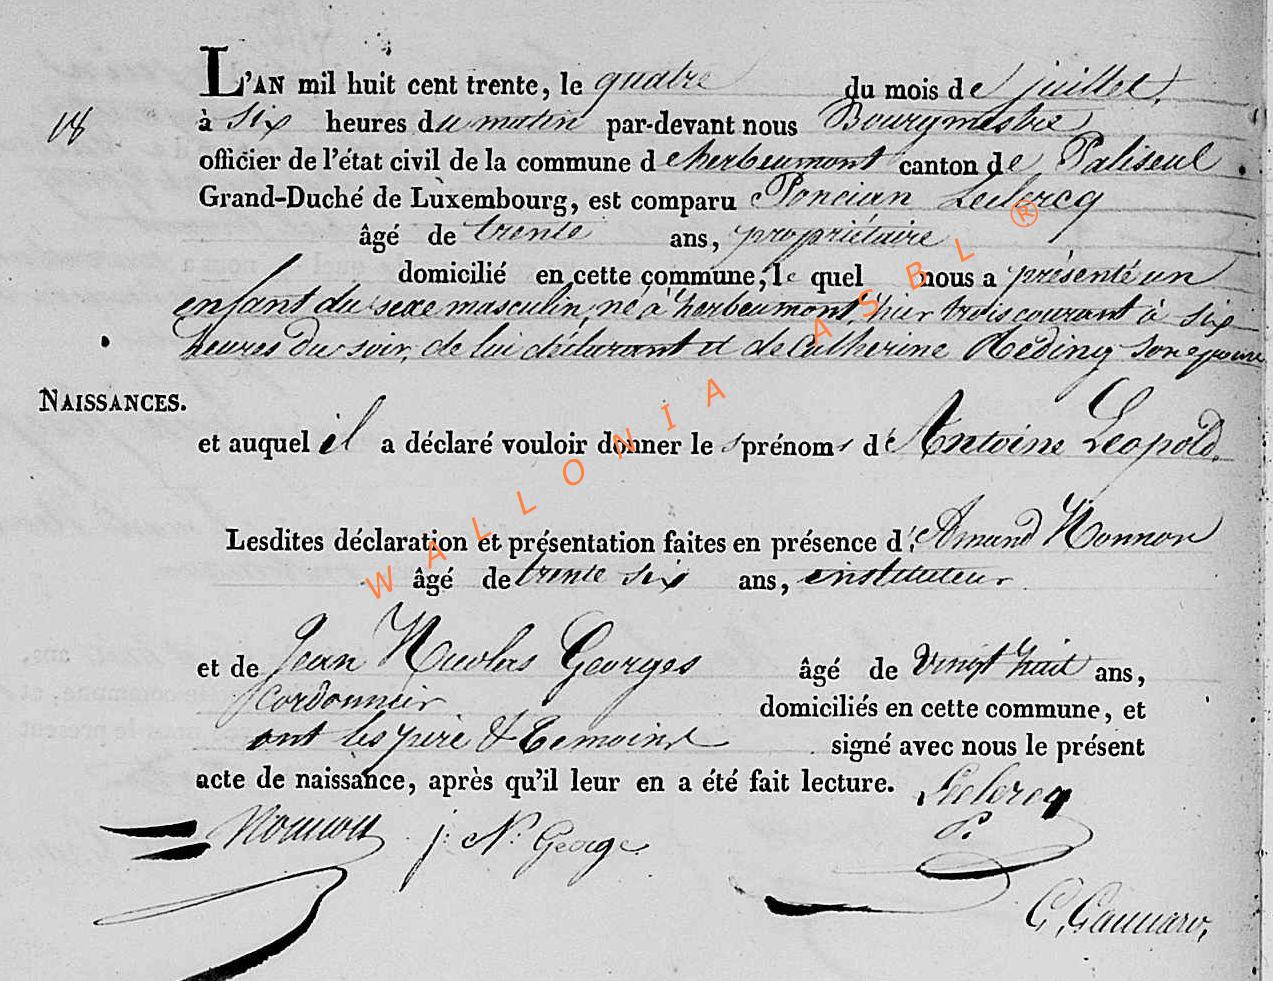 L'AN mil huit cent trente, le quatre du mois de juillet,
18
à six heures du matin par-devant nous Bourgmestre
officier de l'état civil de la commune d'herbeumont canton de Paliseul
Grand-Duché de Luxembourg, est comparu Poncian Leclercq
âgé de trente ans, propriétaire
domicilié en cette commune, le quel nous a présenté un
enfant du sexe masculin, né à herbeumont, hier trois courant à six
heures du soir, de lui déclarant et de Catherine Réding son epouse
NAISSANCES.
et auquel il a déclaré vouloir donner les prénoms d'Antoine Leopold.
Lesdites déclaration et présentation faites en présence d'Amand Nonnon
âgé de trente six ans, instituteur
et de Jean Nicolas Georges âgé de vingt huit ans,
Cordonnier domiciliés en cette commune, et
ont les père & temoins signé avec nous le présent
acte de naissance, après qu'il leur en a été fait lecture.
Leclercq
P.
Nonnon j. N. George
G. Gannard.
WALLONIA ASBL ®